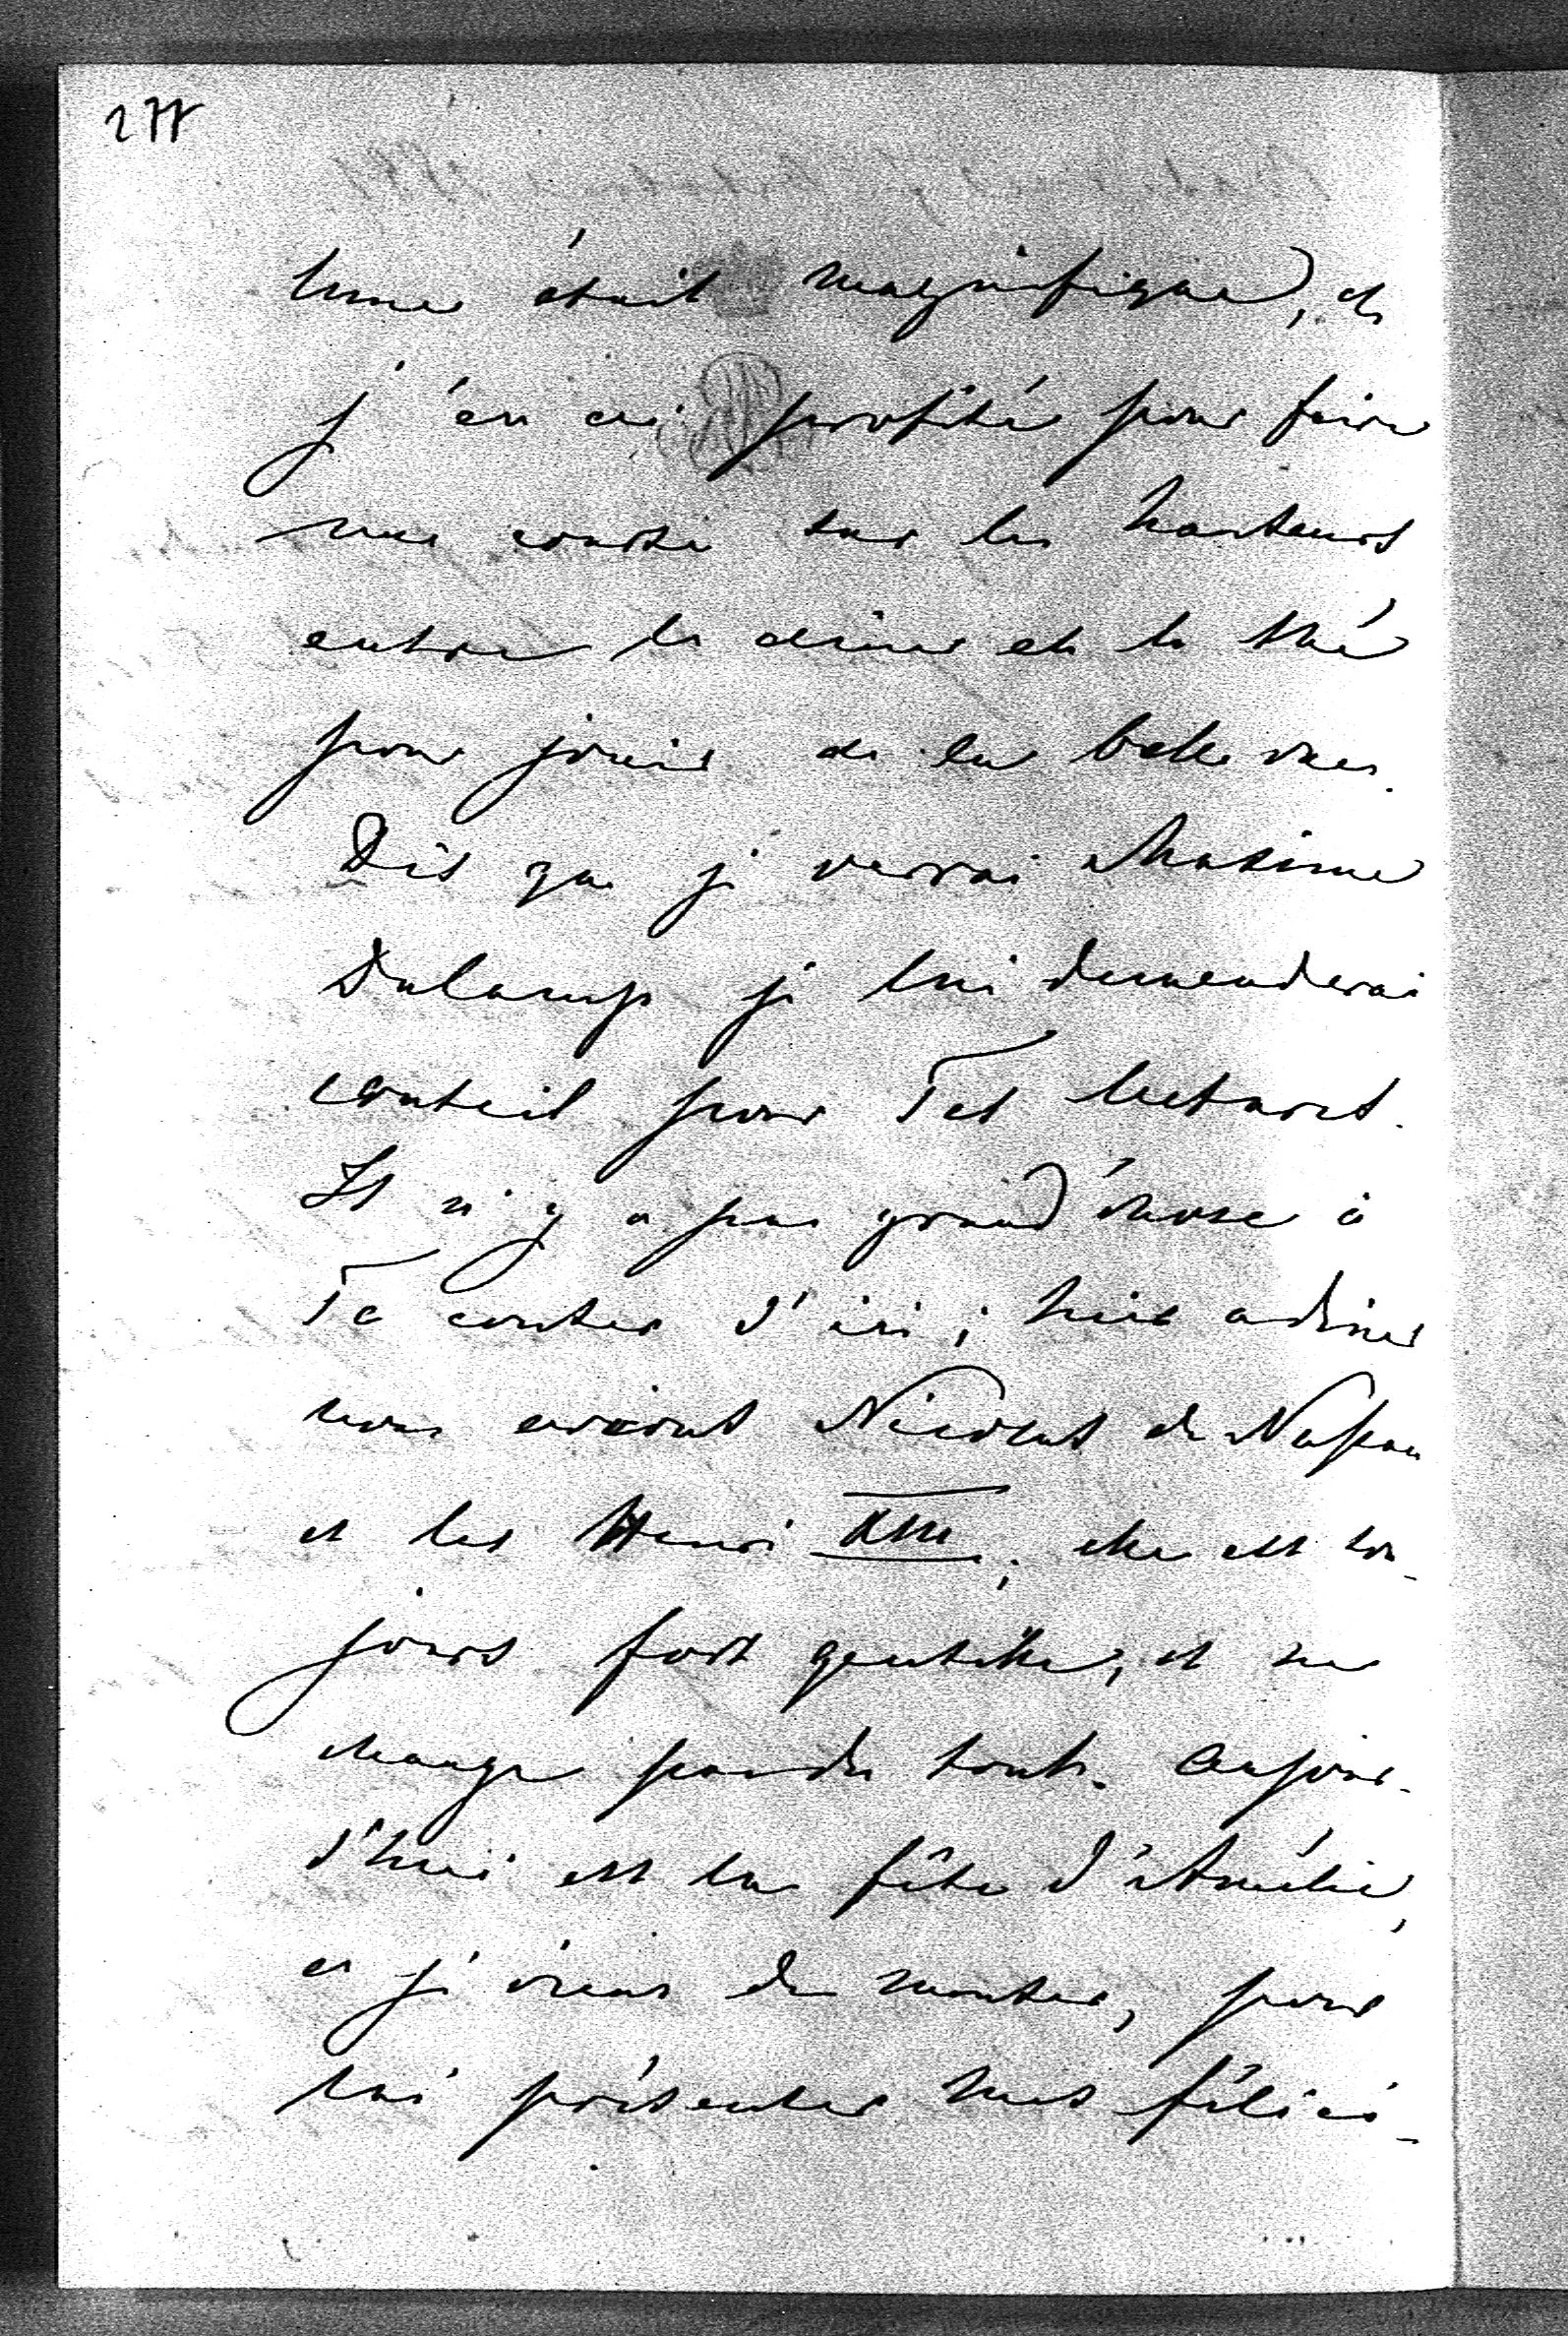 lune était magnifique, et
j'en ai profité pour faire
une course sur les hauteurs
entre le diner et le thé
pour jouir de la belle vue.
Dès que je verrai Maxime
Ducamp je lui demanderai
conseil pour Tes lectures.
Il n'y a pas grand'chose à
Te conter d'ici; hier a diner
nous avions Nicolas de Nassau
et les Henri XIII; elle est tou-
jours fort gentille, et ne
change pas du tout. Aujour-
d'hui est la fête d'Amélie,
et je viens de monter, pour
lui présenter mes félici-